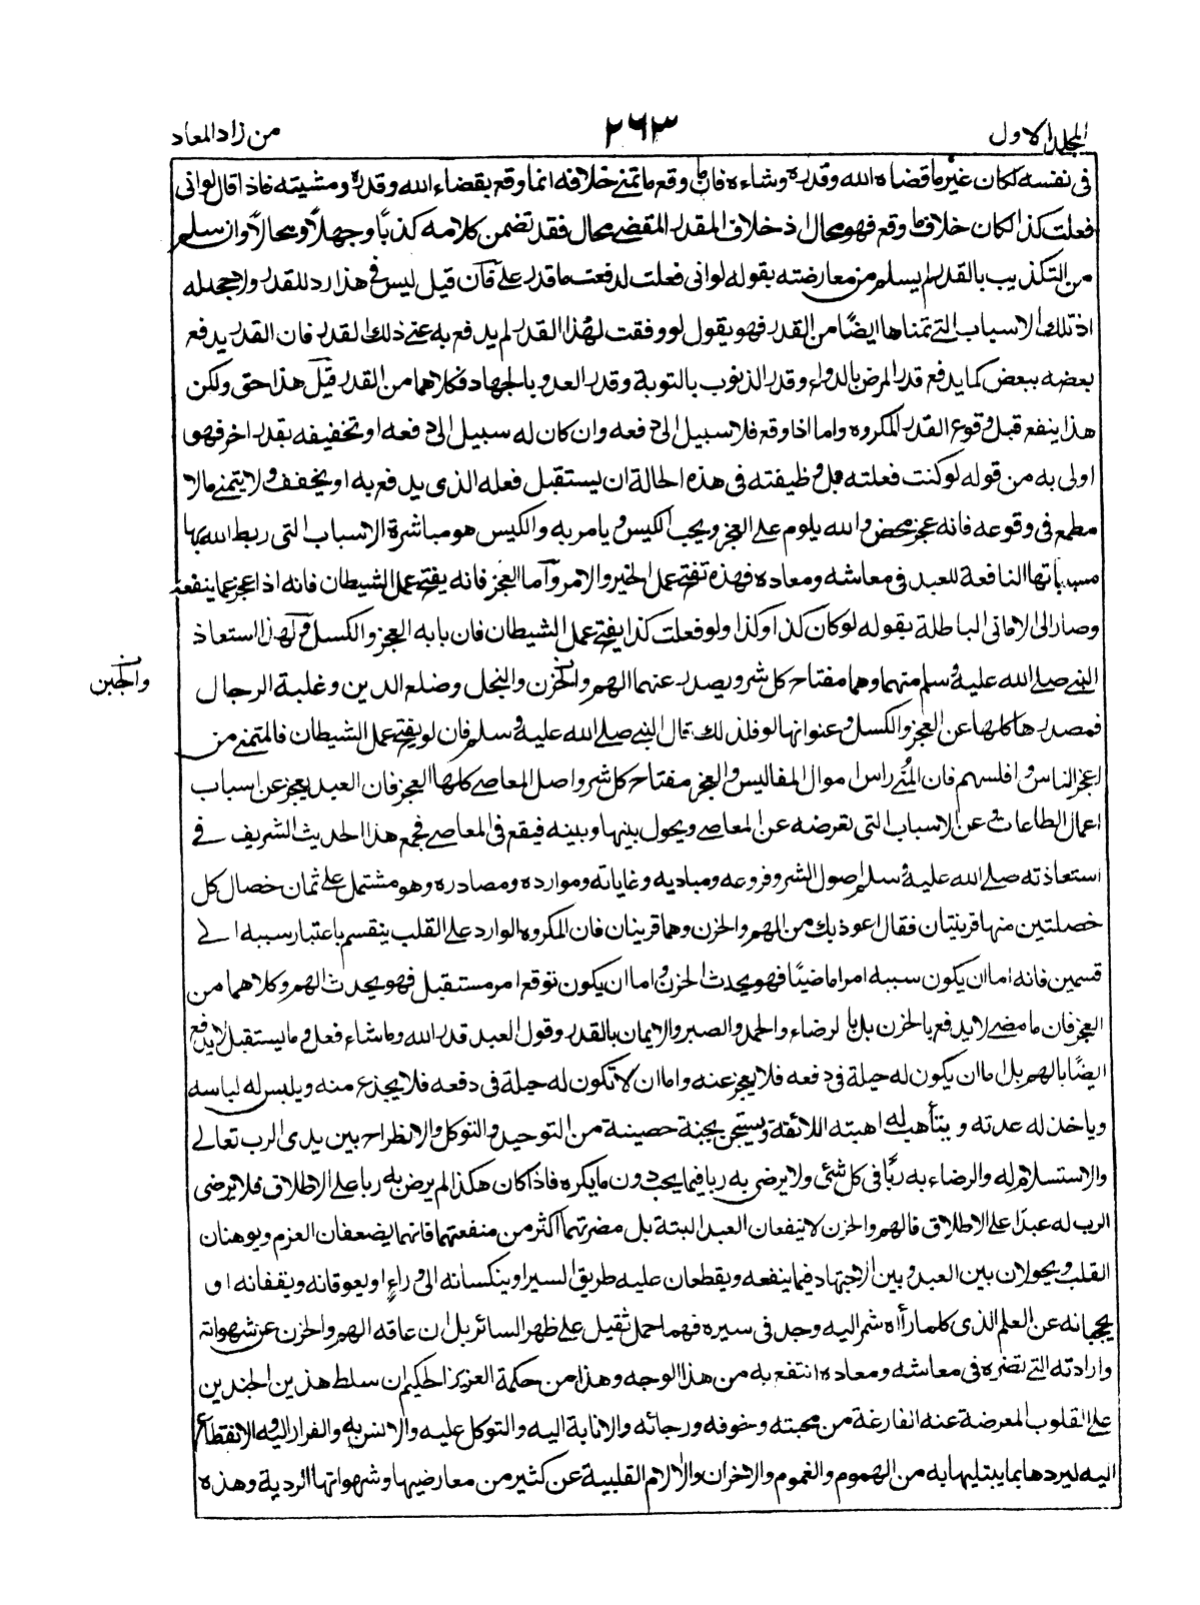 المجلد الاول
٢٦٣
من زاد المعاد
فى نفسه لكان غير ما قضاه الله وقدره وشاءه فان ما وقع ما تمنى خلافه انما وقع بقضاء الله وقدره ومشيته فاذا قال لوانى
فعلت كذا لكان خلاف ما وقع فهو محال اذ خلاف المقدر المقضى محال فقد تضمن كلامه كذبًا وجهلًا ومحالًا وان سلم
من التكذيب بالقدر لم يسلم من معارضته بقوله لوانى فعلت لدفعت ما قدر على فآن قيل ليس فى هذا رد للقدر ولا جحد له
اذ تلك الاسباب التى تمناها ايضًا من القدر فهو يقول لو وفقت لهذا القدر لم يدفع به عنى ذلك القدر فان القدر يدفع
بعضه ببعض كما يدفع قدر المرض بالدواء وقدر الذنوب بالتوبة وقدر العدو بالجهاد فكلاهما من القدر قيل هذا حق ولكن
هذا ينفع قبل وقوع القدر المكروه واما اذا وقع فلا سبيل الى دفعه وان كان له سبيل الى دفعه او تخفيفه بقدر اخر فهو
اولى به من قوله لو كنت فعلته بل وظيفته فى هذه الحالة ان يستقبل فعله الذى يدفع به او يخفف ولا يتمنى مالا
مطمع فى وقوعه فانه عجز محض والله يلوم على العجز ويحب الكيس ويامر به والكيس هو مباشرة الاسباب التى ربط الله بها
مسبباتها النافعة للعبد فى معاشه ومعاده فهذه تفتح عمل الخير والامر وآما العجز فانه يفتح عمل الشيطان فانه اذا عجز عما ينفعه
وصار الى الامانى الباطلة بقوله لو كان كذا وكذا ولو فعلت كذا يفتح عمل الشيطان فان بابه العجز والكسل ولهذا استعاذ
النبى صلى الله عليه وسلم منهما وهما مفتاح كل شر ويصدر عنهما الهم والحزن والبخل وضلع الدين وغلبة الرجال
والجبن
فمصدرها كلها عن العجز والكسل وعنوانها لو فلذلك قال النبى صلى الله عليه وسلم فان لو يفتح عمل الشيطان فالمتمنى من
اعجز الناس وافلسهم فان المُنى راس اموال المفاليس والعجز مفتاح كل شر واصل المعاصى كلها العجز فان العبد يعجز عن اسباب
اعمال الطاعات وعن الاسباب التى تعرضه عن المعاصى ويحول بينها وبينه فيقع فى المعاصى فجمع هذا الحديث الشريف فى
استعاذته صلى الله عليه وسلم اصول الشر وفروعه ومباديه وغاياته وموارده ومصادره وهو مشتمل على ثمان خصال كل
خصلتين منها قرينتان فقال اعوذ بك من الهم والحزن وهما قرينان فان المكروه الوارد على القلب ينقسم باعتبار سببه الى
قسمين فانه اما ان يكون سببه امرا ماضيًا فهو يحدث الحزن واما ان يكون توقع امر مستقبل فهو يحدث الهم وكلاهما من
العجز فان ما مضى لا يدفع بالحزن بل بالرضاء والحمد والصبر والايمان بالقدر وقول العبد قدر الله وما شاء فعل وما يستقبل لا يدفع
ايضًا بالهم بل اما ان يكون له حيلة فى دفعه فلا يعجز عنه واما ان لا تكون له حيلة فى دفعه فلا يجزع منه ويلبس له لباسه
وياخذ له عدته ويتأهب له اهبته اللائقة ويستجن بجنة حصينة من التوحيد والتوكل والانطراح بين يدى الرب تعالى
والاستسلام له والرضاء به ربًّا فى كل شئ ولا يرضى به ربا فيما يحب دون ما يكره فاذا كان هكذا لم يرض به ربا على الاطلاق فلا يرضى
الرب له عبدًا على الاطلاق فالهم والحزن لا ينفعان العبد البتة بل مضرتهما اكثر من منفعتهما فانهما يضعفان العزم ويوهنان
القلب ويحولان بين العبد وبين الاجتهاد فيما ينفعه ويقطعان عليه طريق السير او ينكسانه الى وراءٍ او يعوقانه ويقفانه او
يحجبانه عن العلم الذى كلما رأاه شمر اليه وجد فى سيره فهما حمل ثقيل على ظهر السائر بل ان عاقه الهم والحزن عن شهواته
وارادته التى تضره فى معاشه ومعاده انتفع به من هذا الوجه وهذا من حكمة العزيز الحكيم ان سلط هذين الجندين
على القلوب المعرضة عنه الفارغة من محبته وخوفه ورجائه والانابة اليه والتوكل عليه والانس به والفرار اليه والانقطاع
اليه ليردها بما يبتليها به من الهموم والغموم والاحزان والالام القلبية عن كثير من معارضيها وشهواتها الردية وهذه